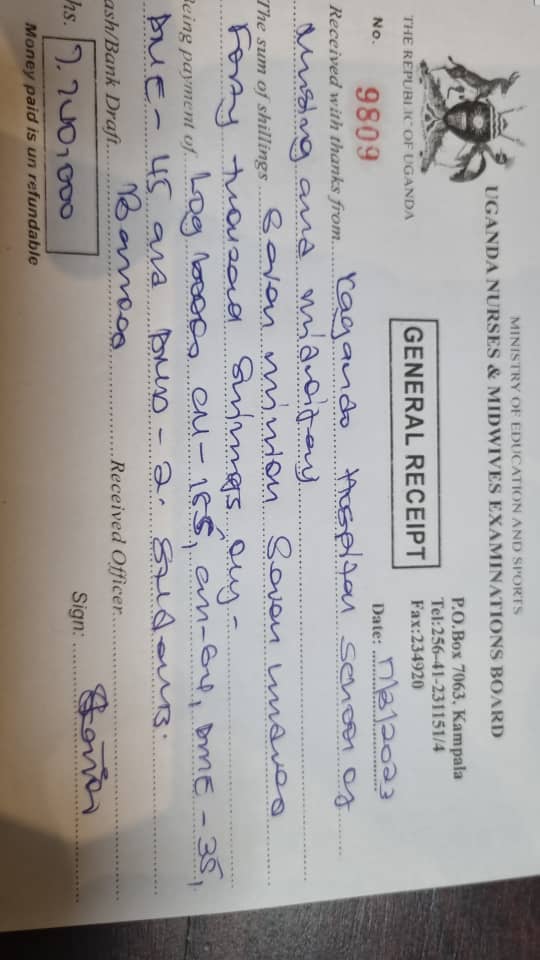 MINISTRY OF EDUCATION AND SPORTS
UGANDA NURSES & MIDWIVES EXAMINATIONS BOARD
THE REPUBLIC OF UGANDA
P.O.Box 7063, Kampala
Tel:256-41-231151/4
Fax:234920
GENERAL RECEIPT
No. 9809
Date: 2023
Received with thanks from Kagando Hospital School of
nursing and midwifery
The sum of shillings Seven million Seven hundred
Forty thousand Shillings only -
eing payment of Log books CM - 155, CN - 64, DME - 35,
DNE - 45 and 2. Students.
ash/Bank Draft Received Officer
hs. 7,740,000 Sign:
Money paid is un refundable